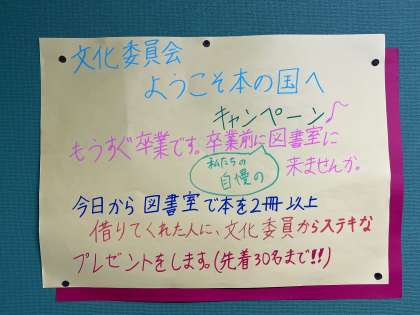 文化委員会
ようこそ本の国へ
キャンペーン♪
もうすぐ卒業です。卒業前に図書室に
私たちの
自慢の
来ませんか。
今日から図書室で本を2冊以上
借りてくれた人に、文化委員からステキな
プレゼントをします。(先着30名まで!!)